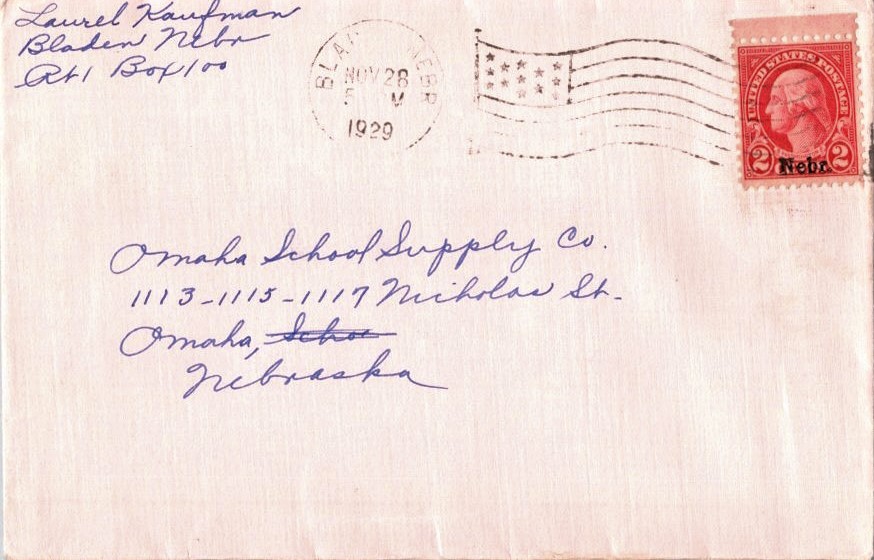 Laurel Kaufman
Bladen Nebr
Rt 1 Box 100
NEBR
NOV 28
M
1929
UNITED STATES POSTAGE
2 Nebr. 2
Omaha School Supply Co.
1113-1115-1117 Nicholas St.
Omaha, Schoo
Nebraska